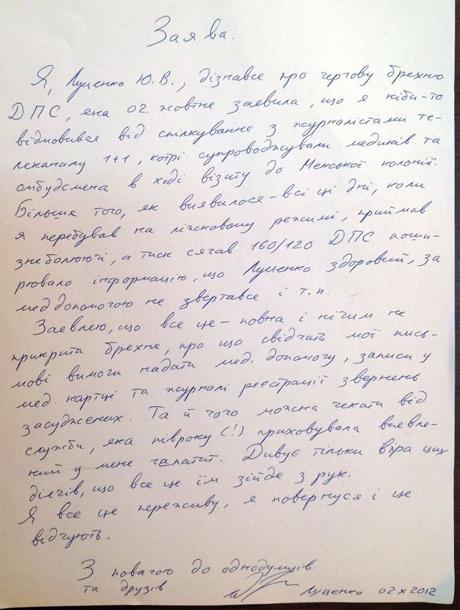 Заява.
Я, Луценко Ю.В., дізнався про чергову брехню
ДПС, яка 02. жовтня заявила, що я ніби-то
відмовився від спілкування з журналістами те-
леканалу 1+1, котрі супроводжували медиків та
омбудсмена в ході візиту до Менської колонії.
Більше того, як виявилося - всі ці дні, коли
я перебував на ліжковому режимі, приймав
знеболюючі, а тиск сягав 160/120 ДПС поши-
рювало інформацію, що Луценко здоровий, за
мед допомогою не звертався і т.п.
Заявляю, що все це - повна і нічим не
прикрита брехня, про що свідчать мої пись-
мові вимоги надати мед. допомогу, записи у
мед картці та журналі реєстрації звернень
засуджених. Та й чого можна чекати від
служби, яка півроку (!) приховувала виявле-
ний у мене гепатит. Дивує тільки віра цих
діячів, що все це їм зійде з рук.
Я все це переживу, я повернуся і це
відчують.
З повагою до однодумців
та друзів
Луценко 02 X 2012